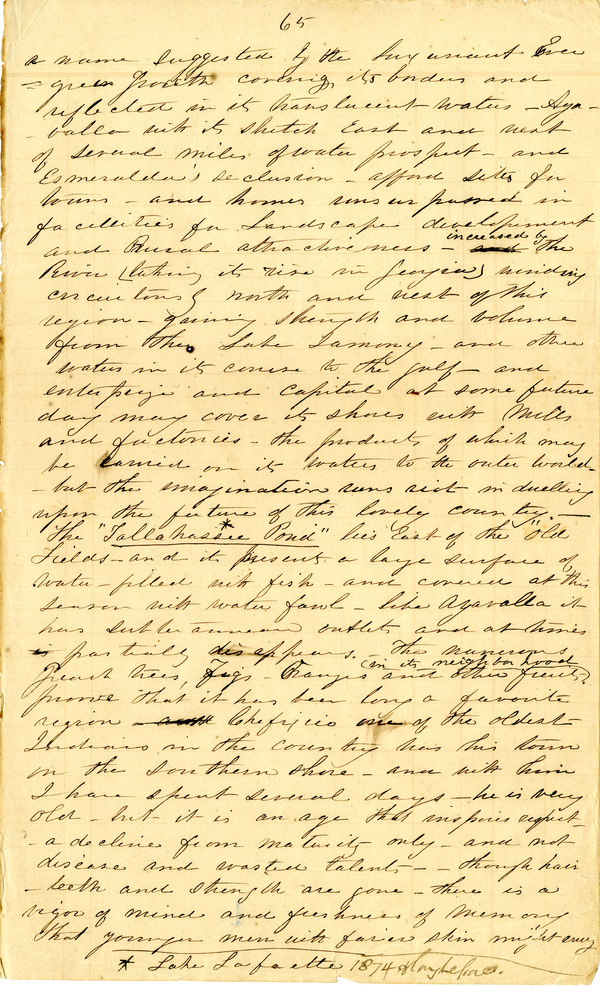 65
a name suggested by the luxuriant Ever
=green growth covering its borders and
reflected in its translucent waters - Aya-
-valla with its stretch East and west
of several miles of water prospect - and
Esmeralda's seclusion - afford sites for
towns - and homes unsurpassed in
facilities for Landscape development
and Rural attractiveness - increased by the
River (taking its rise in Georgia) winding
circuitously north and west of this
region - gaining strength and volume
from the Lake Iamony - and other
waters in its course to the gulf - and
enterprize and capital at some future
day may cover its shores with Mills
and factories - the products of which may
be carried on its waters to the outer world -
- but the imagination runs riot in dwelling
upon the future of this lovely country. -
The "Tallahassee Pond"* lies East of the "Old
Fields - and it presents a large surface of
water - filled with fish - and covered at this
season with water fowl - like Ayavalla it
has subterranean outlets and at times
partially disappears. - The numerous
Peach trees, Figs - Oranges and other fruits (in its neighborhood).
prove that it has been long a favorite
region - Chefixico one of the oldest
Indians in the country has his town
on the southern shore - and with him
I have spent several days - he is very
old - but it is an age that inspires respect -
- a decline from maturity only - and not
disease and wasted talents - - though hair
- teeth and strength are gone - there is a
vigor of mind and freshness of Memory
that younger men with fairer skin might envy
* Lake Lafayette 1874